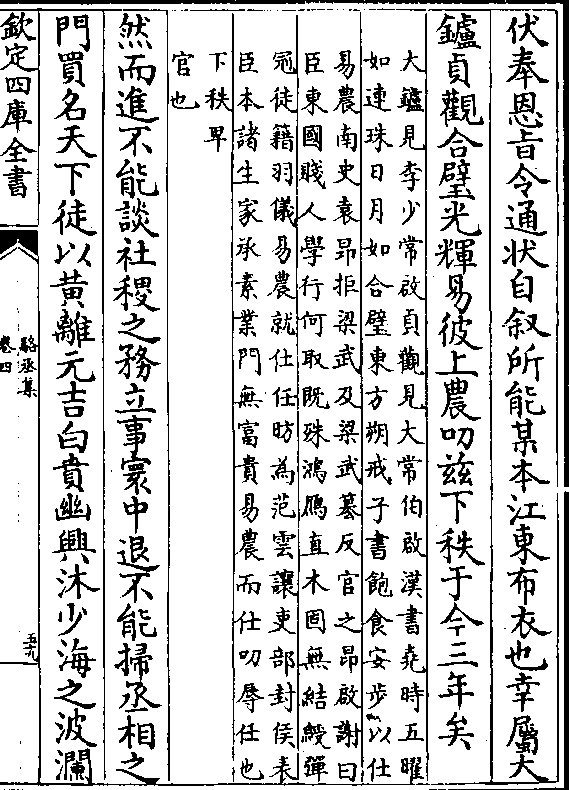 伏奉恩旨令通状自叙所能某本江東布衣也幸屬大
鑪貞觀合璧光輝易彼上農叨兹下秩于今三年矣
大鑪見李少常啟貞觀見大常伯啟漢書堯時五曜
如連珠日月如合璧東方朔戒子書飽食安歩以仕
易農南史袁昂拒梁武及梁武纂反官之昂啟謝曰
臣東國賤人學行何取既殊鴻鴈直木固無結綬彈
冠徒籍羽儀易農就仕任昉為范雲讓吏部封侯表
臣本諸生家承素業門無富貴易農而仕叨辱任也
下秩卑
官也
然而進不能談社稷之務立事寰中退不能掃丞相之
門買名天下徒以黄離元吉白賁幽興沐少海之波瀾
欽定四庫全書
駱丞集
卷四
五九